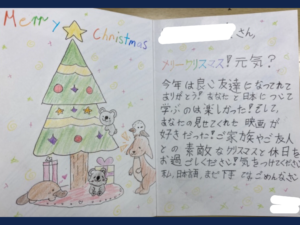 Merry Christmas
さん、
メリークリスマス!元気?
今年は良い友達になってくれて
ありがとう!あなたと日本について
学ぶのは楽しかった!そして、
あなたの見せてくれた映画が
好きだった!ご家族やご友人
との素敵なクリスマスと休日を
お過ごしください!気をつけてください
日本語、まだ下手 ごめんなさい